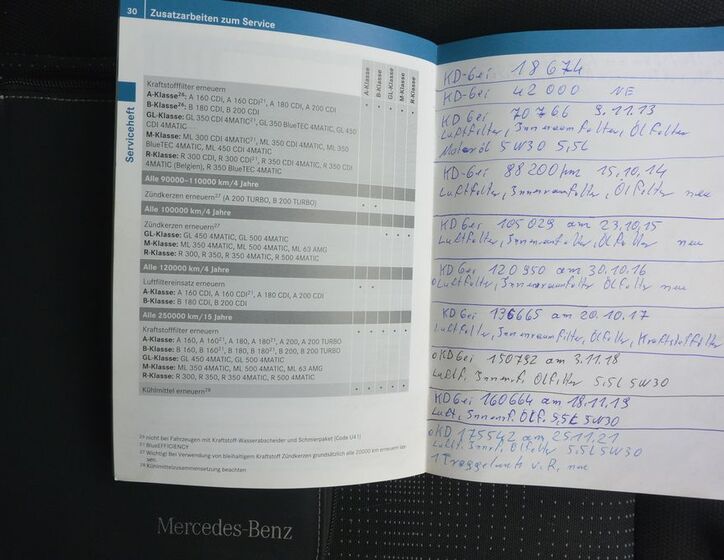 30 Zusatzarbeiten zum Service
Serviceheft
A-Klasse
B-Klasse
GL-Klasse
M-Klasse
R-Klasse
Kraftstofffilter erneuern
A-Klasse²⁶: A 160 CDI, A 160 CDI²¹, A 180 CDI, A 200 CDI
B-Klasse²⁶: B 180 CDI, B 200 CDI
GL-Klasse: GL 350 CDI 4MATIC²¹, GL 350 BlueTEC 4MATIC, GL 450
CDI 4MATIC
M-Klasse: ML 300 CDI 4MATIC²¹, ML 350 CDI 4MATIC, ML 350
BlueTEC 4MATIC, ML 450 CDI 4MATIC
R-Klasse: R 300 CDI, R 300 CDI²¹, R 350 CDI 4MATIC, R 350 CDI
4MATIC (Belgien), R 350 BlueTEC 4MATIC
Alle 90000–110000 km/4 Jahre
Zündkerzen erneuern²⁷ (A 200 TURBO, B 200 TURBO)
Alle 100000 km/4 Jahre
Zündkerzen erneuern²⁷
GL-Klasse: GL 450 4MATIC, GL 500 4MATIC
M-Klasse: ML 350 4MATIC, ML 500 4MATIC, ML 63 AMG
R-Klasse: R 300, R 350, R 350 4MATIC, R 500 4MATIC
Alle 120000 km/4 Jahre
Luftfiltereinsatz erneuern
A-Klasse: A 160 CDI, A 160 CDI²¹, A 180 CDI, A 200 CDI
B-Klasse: B 180 CDI, B 200 CDI
Alle 250000 km/15 Jahre
Kraftstofffilter erneuern
A-Klasse: A 160, A 160²¹, A 180, A 180²¹, A 200, A 200 TURBO
B-Klasse: B 160, B 160²¹, B 180, B 180²¹, B 200, B 200 TURBO
GL-Klasse: GL 450 4MATIC, GL 500 4MATIC
M-Klasse: ML 350 4MATIC, ML 500 4MATIC, ML 63 AMG
R-Klasse: R 300, R 350, R 350 4MATIC, R 500 4MATIC
Kühlmittel erneuern²⁸
²⁶ nicht bei Fahrzeugen mit Kraftstoff-Wasserabscheider und Schmierpaket (Code U41)
²¹ BlueEFFICIENCY
²⁷ Wichtig! Bei Verwendung von bleihaltigem Kraftstoff Zündkerzen grundsätzlich alle 20000 km erneuern lassen.
²⁸ Kühlmittelzusammensetzung beachten.
KD bei 18674
KD-bei 42 000 NE
KD bei 70766 9.11.13
Luftfilter, Innenraumfilter, Ölfilter
Motoröl 5W30 5,5L
KD-bei 88200km 15.10.14
Luftfilter, Innenraumfilter, Ölfilter neu
KD bei 105029 am 23.10.15
Luftfilter, Innenraumfilter, Ölfilter neu
KD bei 120950 am 30.10.16
Luftfilter, Innenraumfilter Ölfilter neu
KD bei 136665 am 20.10.17
Luftfilter, Innenraumfilter, Ölfilter, Kraftstoffilter
KD bei 150792 am 3.11.18
Luftf. Innenf. Ölfilter 5,5L 5W30
KD bei 160664 am 18.11.19
Luft, Innenf. Ölf. 5,5L 5W30
KD 175542 am 25.11.21
Luftf. Innenf. Ölfilter 5,5L 5W30
1 v. R, neu
Mercedes-Benz